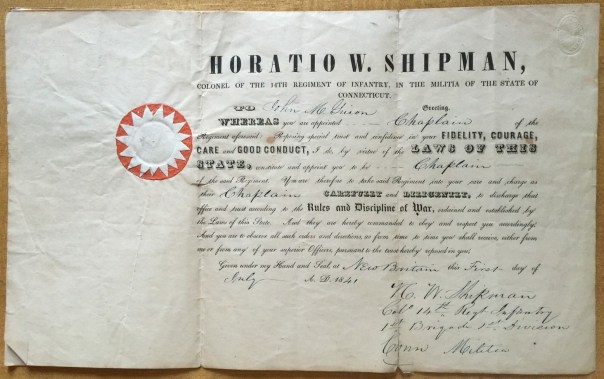 HORATIO W. SHIPMAN,
COLONEL OF THE 14TH REGIMENT OF INFANTRY, IN THE MILITIA OF THE STATE OF
CONNECTICUT.
TO John M. Greeting.
WHEREAS you are appointed Chaplain of the
Regiment aforesaid: Reposing special trust and confidence in your FIDELITY, COURAGE,
CARE and GOOD CONDUCT, I do, by virtue of the LAWS OF THIS
STATE, constitute and appoint you to be Chaplain
of the said Regiment. You are therefore to take said Regiment into your care and charge as
their Chaplain CAREFULLY and DILIGENTLY, to discharge that
office and trust according to the Rules and Discipline of War, ordained and established by
the Laws of this State. And they are hereby commanded to obey and respect you accordingly:
And you are to observe all such orders and directions, as from time to time you shall receive, either from
me or from any of your superior Officers, pursuant to the trust hereby reposed in you.
Given under my Hand and Seal, at New Britain this First day of
July A. D. 1841
H. W. Shipman
Col 14th Regt Infantry
1st Brigade 1st Division
Conn Militia